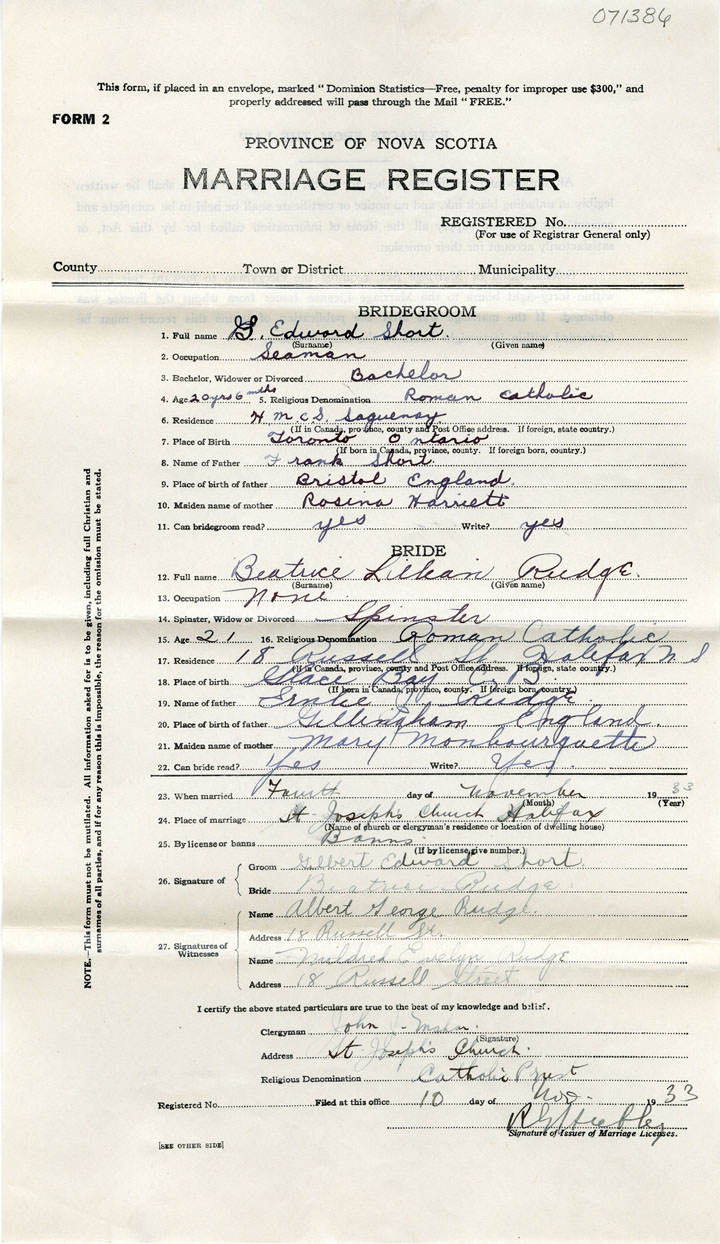 071386
This form, if placed in an envelope, marked "Dominion Statistics—Free, penalty for improper use $300," and
properly addressed will pass through the Mail "FREE."
FORM 2
PROVINCE OF NOVA SCOTIA
MARRIAGE REGISTER
REGISTERED No.
(For use of Registrar General only)
County Town or District Municipality
BRIDEGROOM
1. Full name G. Edward Short.
(Surname) (Given name)
2. Occupation Seaman
3. Bachelor, Widower or Divorced Bachelor
4. Age 20 yrs 6 mths 5. Religious Denomination Roman Catholic
6. Residence H.M.C.S. Saguenay
(If in Canada, province, county and Post Office address. If foreign, state country.)
7. Place of Birth Toronto Ontario
(If born in Canada, province, county. If foreign born, country.)
8. Name of Father Frank Short
9. Place of birth of father Bristol England
10. Maiden name of mother Rosina Harriett
11. Can bridegroom read? yes Write? yes
BRIDE
12. Full name Beatrice Lillian Rudge.
(Surname) (Given name)
13. Occupation None.
14. Spinster, Widow or Divorced Spinster
15. Age 21 16. Religious Denomination Roman Catholic
17. Residence 18 Russell St Halifax N S
(If in Canada, province, county and Post Office address. If foreign, state country.)
18. Place of birth Glace Bay C. B.
(If born in Canada, province, county. If foreign born, country.)
19. Name of father Rudge.
20. Place of birth of father Gillingham England.
21. Maiden name of mother Mary Monbourquette
22. Can bride read? Yes Write? Yes
23. When married Fourth day of November 1933
(Month) (Year)
24. Place of marriage St Joseph's Church Halifax
(Name of church or clergyman's residence or location of dwelling house)
25. By license or banns Banns
(If by license, give number.)
26. Signature of
Groom Gilbert Edward Short
Bride Beatrice Rudge
27. Signatures of Witnesses
Name Albert George Rudge.
Address 18 Russell St.
Name Mildred Evelyn Rudge
Address 18 Russell Street
I certify the above stated particulars are true to the best of my knowledge and belief.
Clergyman John J.
(Signature)
Address St Joseph's Church.
Religious Denomination Catholic Priest
Registered No. Filed at this office 10 day of Nov. 1933
Signature of Issuer of Marriage Licenses.
[SEE OTHER SIDE]
NOTE.—This form must not be mutilated. All information asked for is to be given, including full Christian and
surnames of all parties, and if for any reason this is impossible, the reason for the omission must be stated.